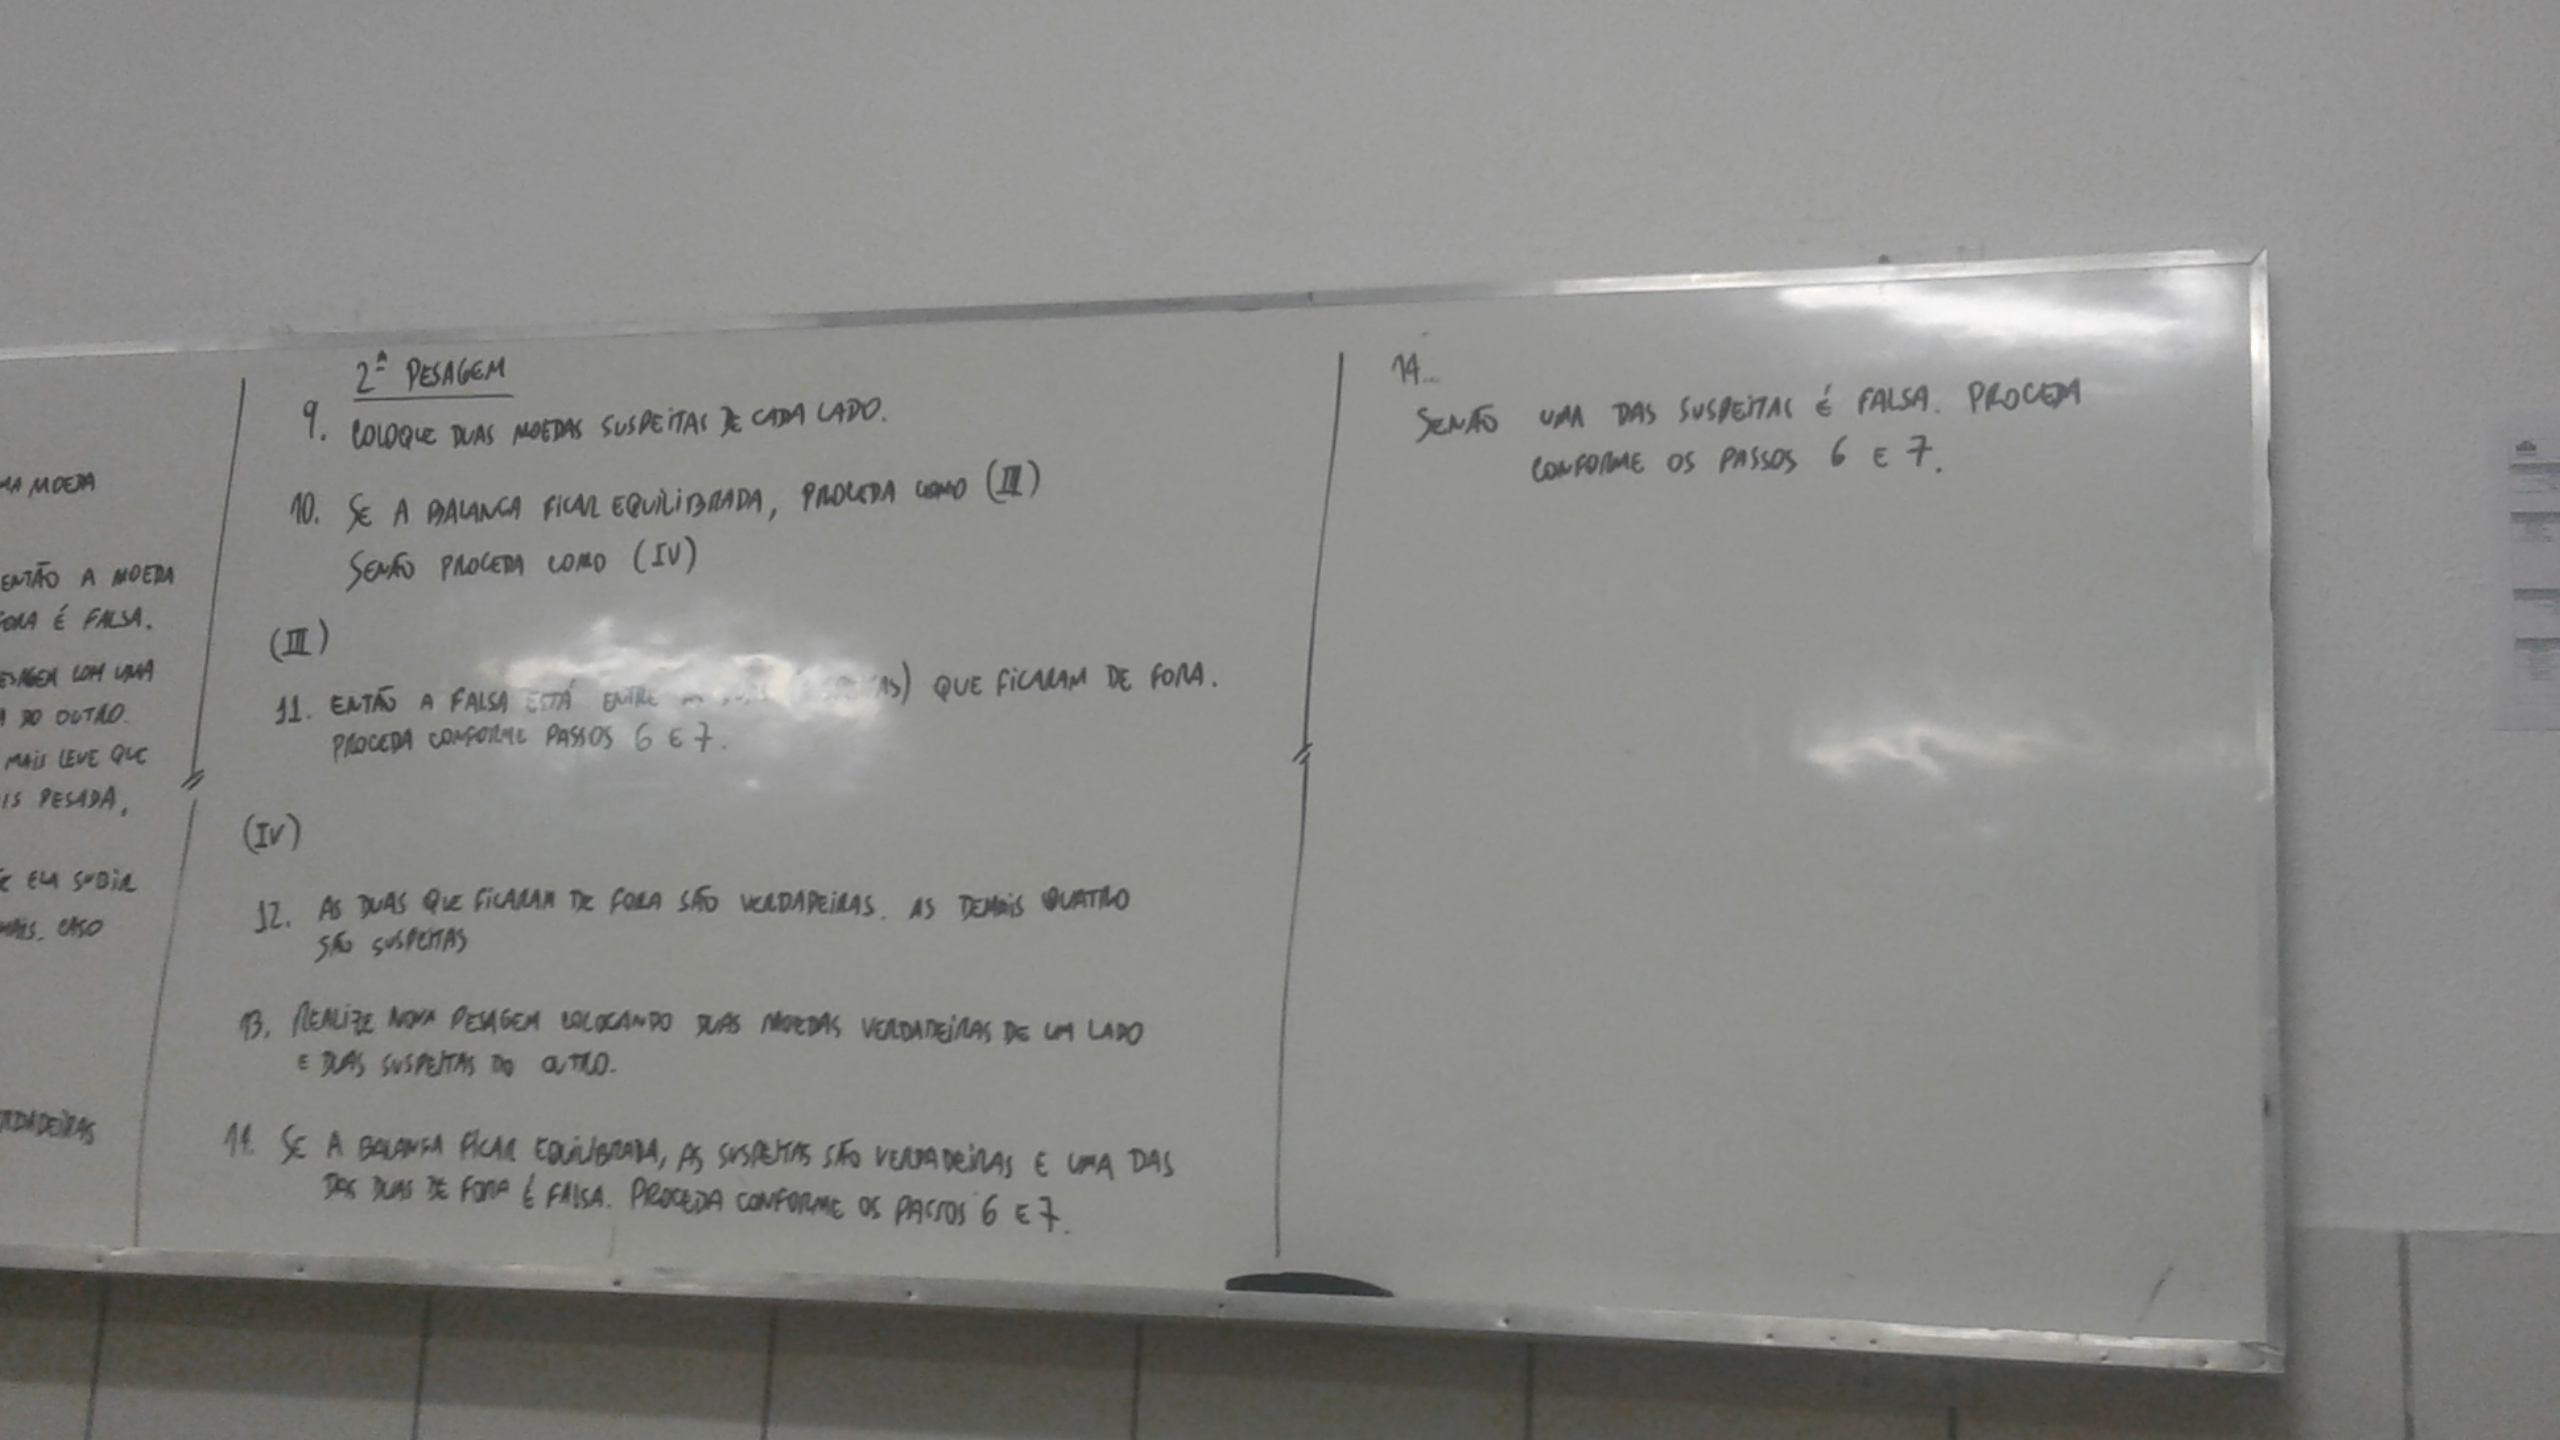 MA MOEDA
ENTÃO A MOEDA
FORA É FALSA.
PESAGEM COM UMA
DO OUTRO.
MAIS LEVE QUE
IS PESADA,
ELA SUBIR
MAIS. CASO
RDADEIRAS
2ª PESAGEM
9. COLOQUE DUAS MOEDAS SUSPEITAS DE CADA LADO.
10. SE A BALANÇA FICAR EQUILIBRADA, PROCEDA COMO (III)
SENÃO PROCEDA COMO (IV)
(III)
11. ENTÃO A FALSA ESTÁ ENTRE QUE FICARAM DE FORA.
PROCEDA CONFORME PASSOS 6 E 7.
(IV)
12. AS DUAS QUE FICARAM DE FORA SÃO VERDADEIRAS. AS DEMAIS QUATRO
SÃO SUSPEITAS
13. REALIZE NOVA PESAGEM COLOCANDO DUAS MOEDAS VERDADEIRAS DE UM LADO
E DUAS SUSPEITAS DO OUTRO.
14. SE A BALANÇA FICAR EQUILIBRADA, AS SUSPEITAS SÃO VERDADEIRAS E UMA DAS
DAS DUAS DE FORA É FALSA. PROCEDA CONFORME OS PASSOS 6 E 7.
14...
SENÃO UMA DAS SUSPEITAS É FALSA. PROCEDA
CONFORME OS PASSOS 6 E 7.